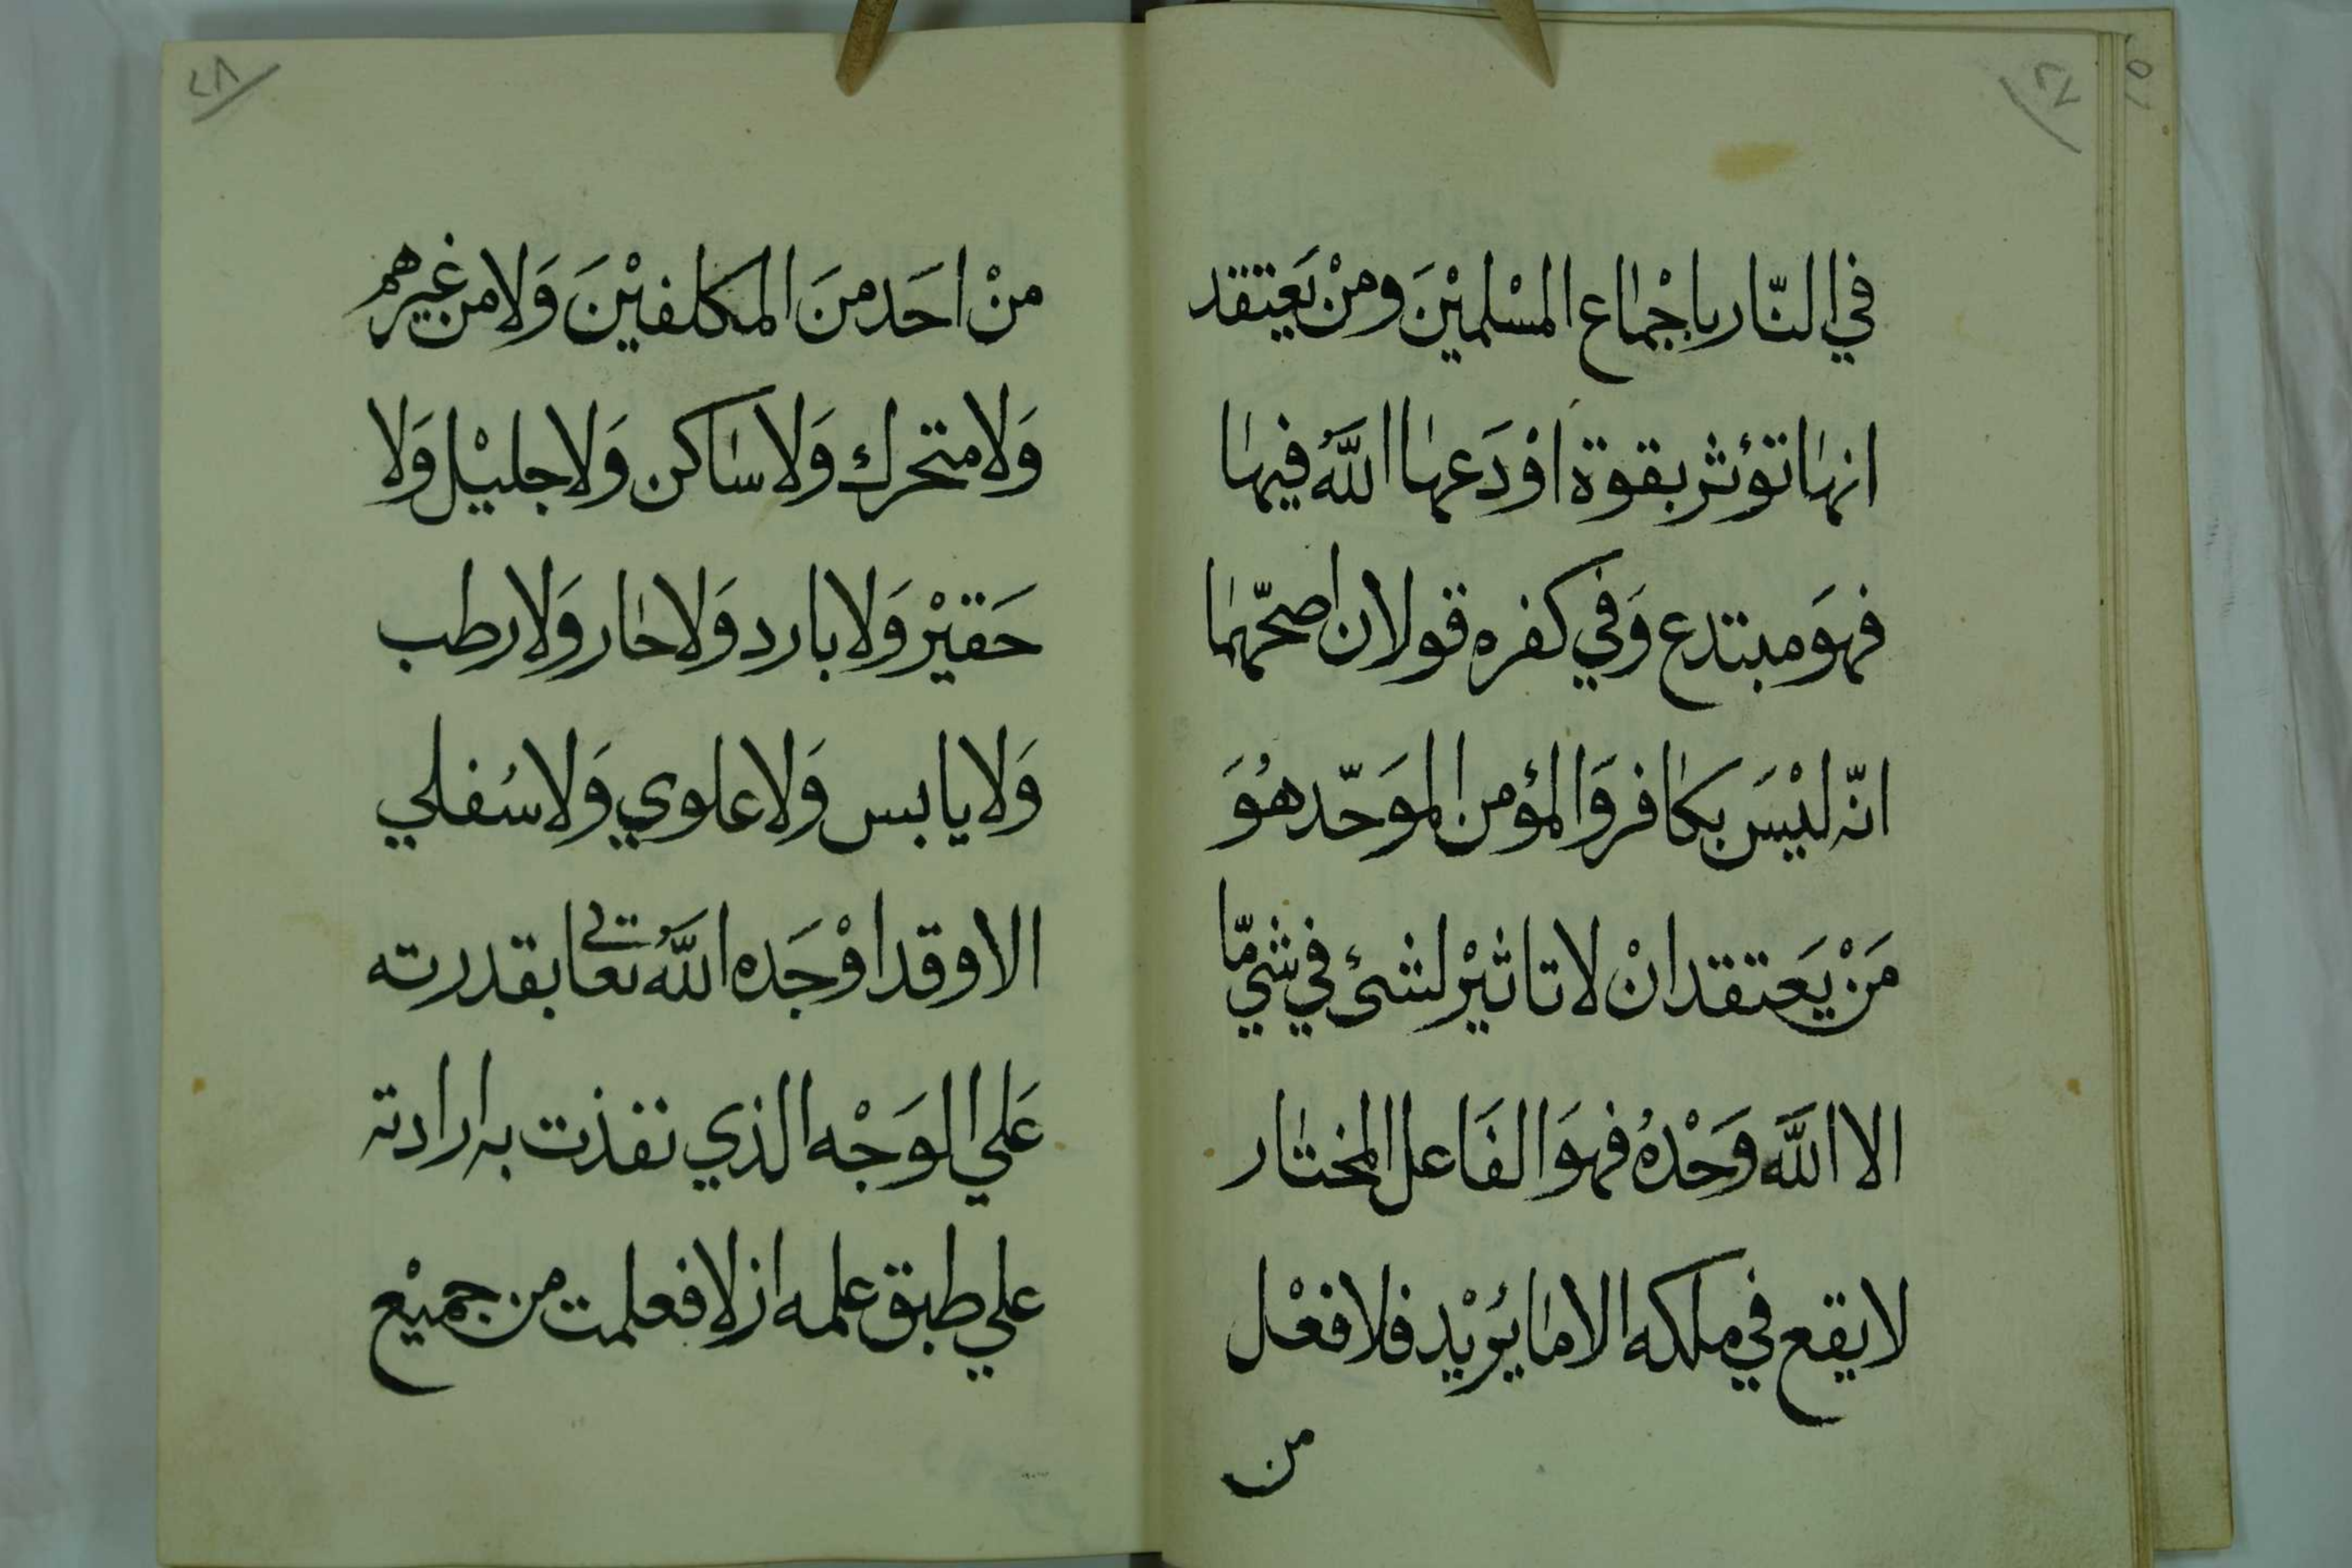 ٢٧
في النّار باجْماع المسْلميْنَ ومنْ يَعتقد
انها تؤثر بقوة اوْدَعها اللَّه فيها
فهوَ مبتدع وَفي كفره قولان اصحّهما
انّه ليْسَ بكافر وَالمؤمن الموَحّد هُوَ
مَنْ يَعتقد انْ لا تاثيْر لشئ في شيءٍ مّا
الا اللَّه وَحْدهُ فهوَ الفَاعل المختار
لا يقع في ملكه الا ما يُريْد فلا فعْل
من
٢٨
منْ احَد منَ المكلفيْنَ وَلا من غيرهم
وَلا متحرك وَلا ساكن وَلا جليْل وَلا
حَقيْر وَلا بارد وَلا حار وَلا رطب
وَلا يابس وَلا علوي وَلا سُفلي
الا وقد اوْجَده اللَّه تعالى بقدرته
عَلي الوَجْه الذي نفذت به ارادته
علي طبق علمه ازلا فعلمت من جميْع